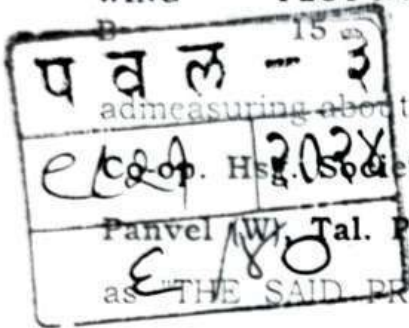 B 15
प व ल - ३
admeasuring about
Co-op. Hsg. Societ
२०२४
Panvel (W), Tal. P
६/४०
as "THE SAID PR